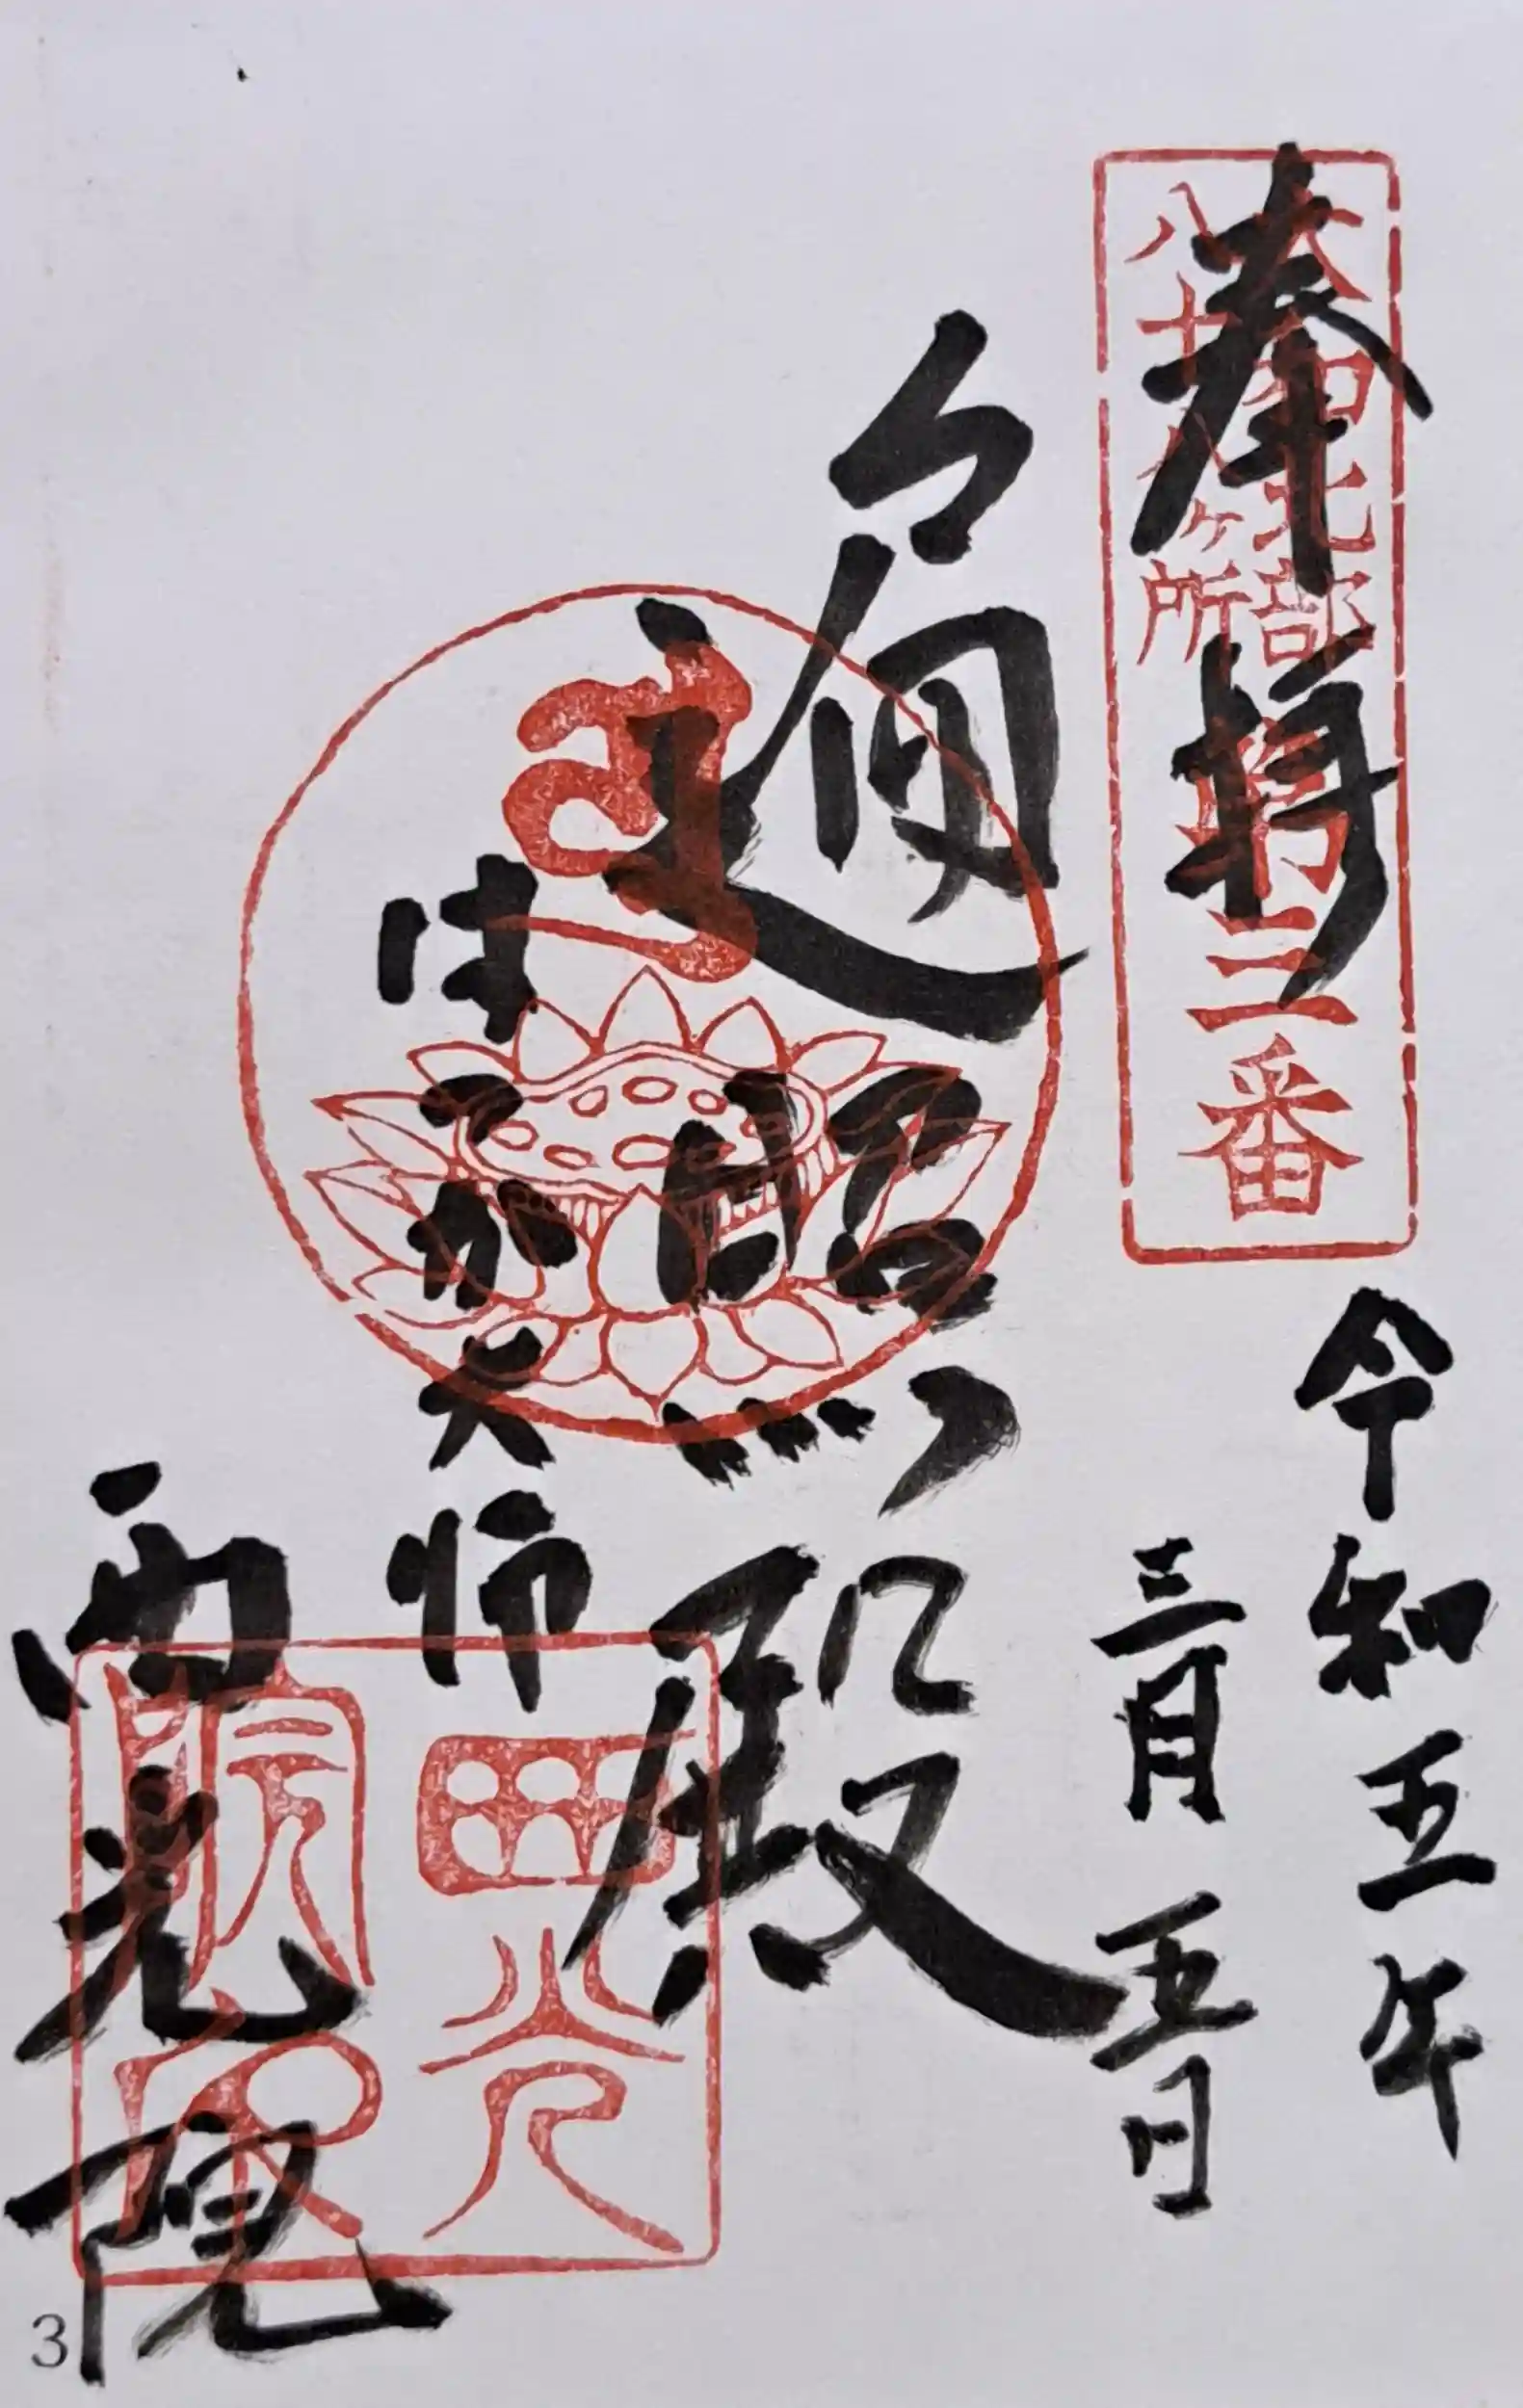 奉拝
大和北部
八十八ヶ所
第三番
令和五年
三月五日
遍照殿
はだか大師
西光院
西光
3